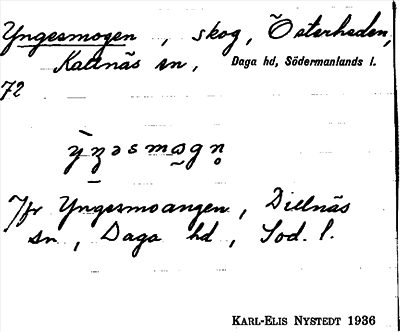 Yngesmogen, skog, Österheden,
Kattnäs sn, Daga hd, Södermanlands l.
72
Jfr Yngesmoangen, Dillnäs
sn, Daga hd, Söd. l.
KARL-ELIS NYSTEDT 1936